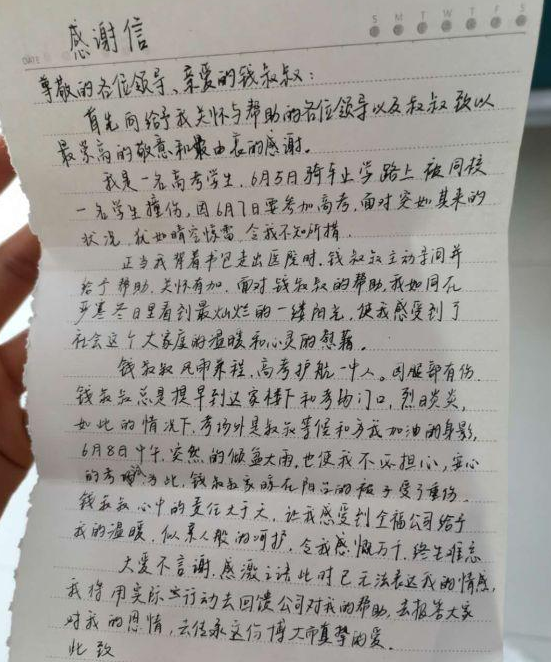 S M T W T F S
DATE
感谢信
尊敬的各位领导、亲爱的钱叔叔：
首先向给予我关怀与帮助的各位领导以及叔叔致以
最崇高的敬意和最由衷的感谢。
我是一名高考学生，6月5日骑车上学路上被同校
一名学生撞伤，因6月7日要参加高考，面对突如其来的
状况，犹如晴空惊雷，令我不知所措。
正当我背着书包走出医院时，钱叔叔主动寻问并
给予帮助，关怀有加，面对钱叔叔的帮助，我如同在
严寒冬日里看到最灿烂的一缕阳光，使我感受到了
社会这个大家庭的温暖和心灵的慰藉。
钱叔叔风雨兼程，高考护航一中人。因腿部有伤，
钱叔叔总是提早到达家楼下和考场门口，烈日炎炎，
如此的情况下，考场外是叔叔等候和为我加油的身影，
6月8日中午，突然的倾盆大雨，也使我不必担心，安心
的考试，为此，钱叔叔家晾在阳台的被子受了重伤。
钱叔叔心中的责任大于天，让我感受到全福公司给予
我的温暖，似亲人般的呵护，令我感慨万千，终生难忘
大爱不言谢，感激之语此时已无法表达我的情感，
我将用实际行动去回馈公司对我的帮助，去报答大家
对我的恩情，去传承这份博大而真挚的爱。
此致